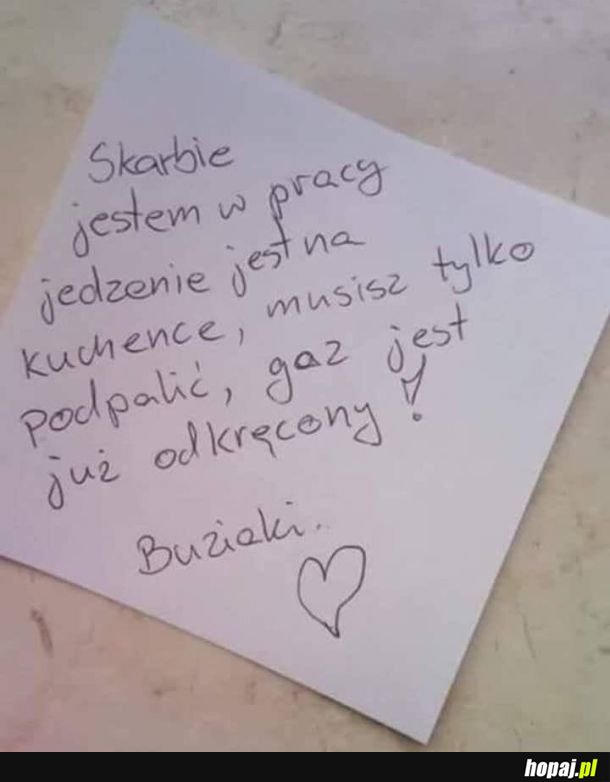 Skarbie
jestem w pracy
jedzenie jest na
kuchence, musisz tylko
podpalić, gaz jest
już odkręcony!
Buziaki.
hopaj.pl